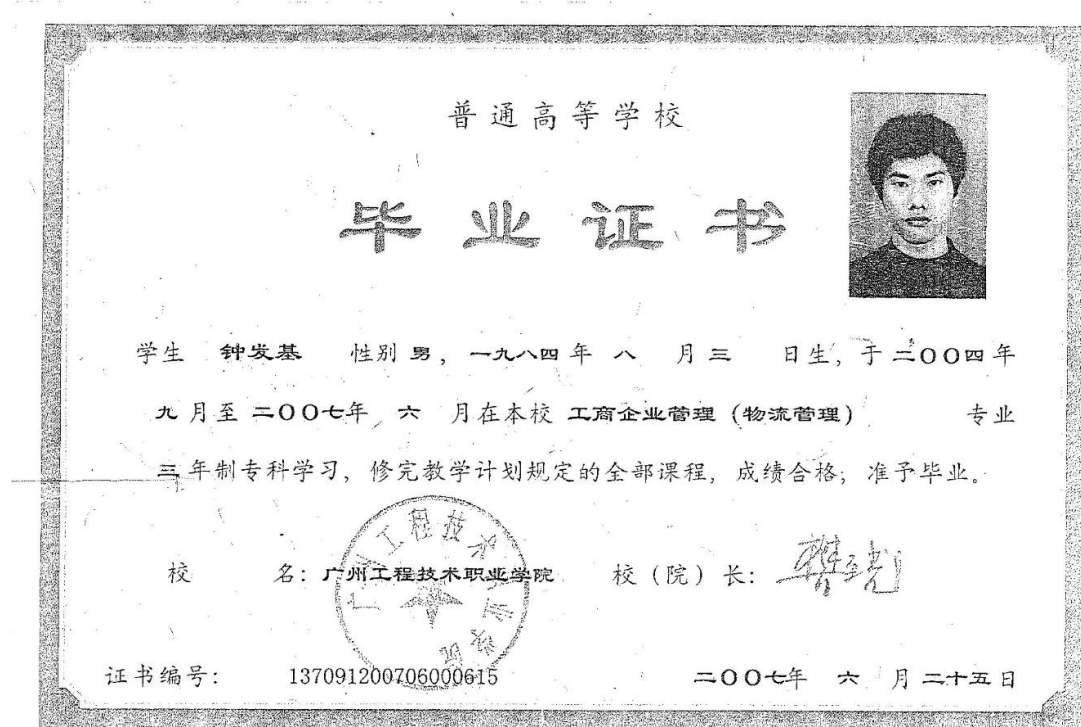 普通高等学校
毕业证书
学生 钟发基 性别 男，一九八四 年 八 月 三 日生，于 二〇〇四 年
九 月至 二〇〇七年 六 月在本校 工商企业管理（物流管理） 专业
三 年制专科学习，修完教学计划规定的全部课程，成绩合格，准予毕业。
校 名：广州工程技术职业学院 校（院）长：
广州工程技术职业学院
证书编号： 137091200706000615 二〇〇七年 六 月 二十五 日